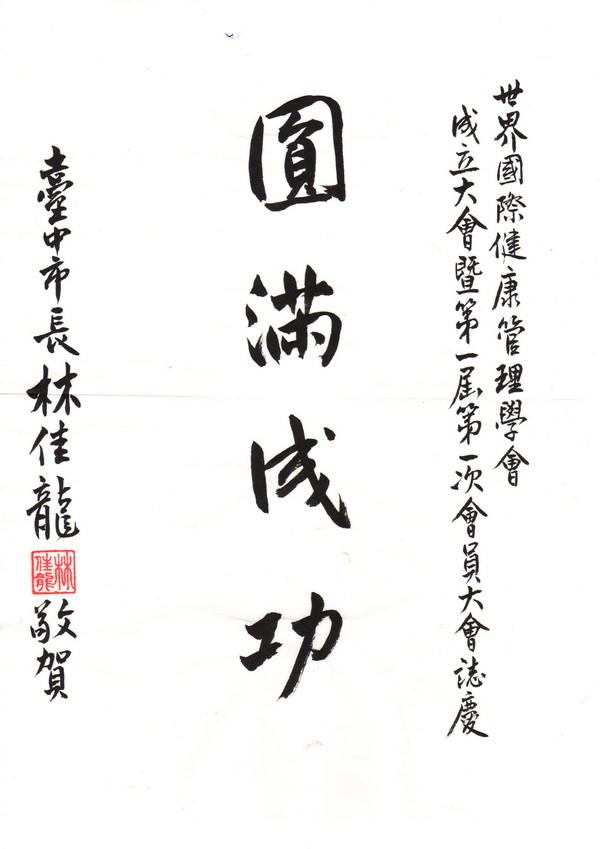 世界國際健康管理學會
成立大會暨第一屆第一次會員大會誌慶
圓滿成功
臺中市長林佳龍
林佳龍
敬賀